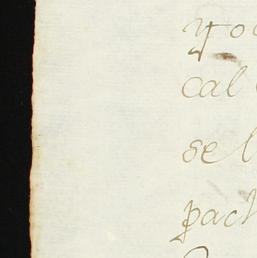 yo
cal
sel
pach